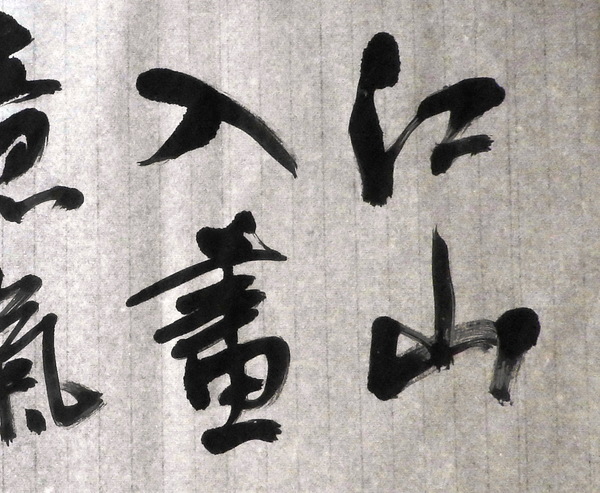 江山
入畫
意氣